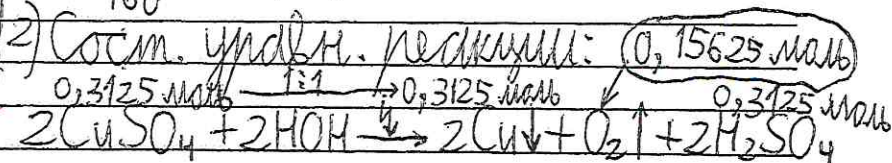 160
2) Сост. уравн. реакции: 0,15625 моль
0,3125 моль 1:1 0,3125 моль 0,3125 моль
2CuSO₄ + 2HOH → 2Cu↓ + O₂↑ + 2H₂SO₄